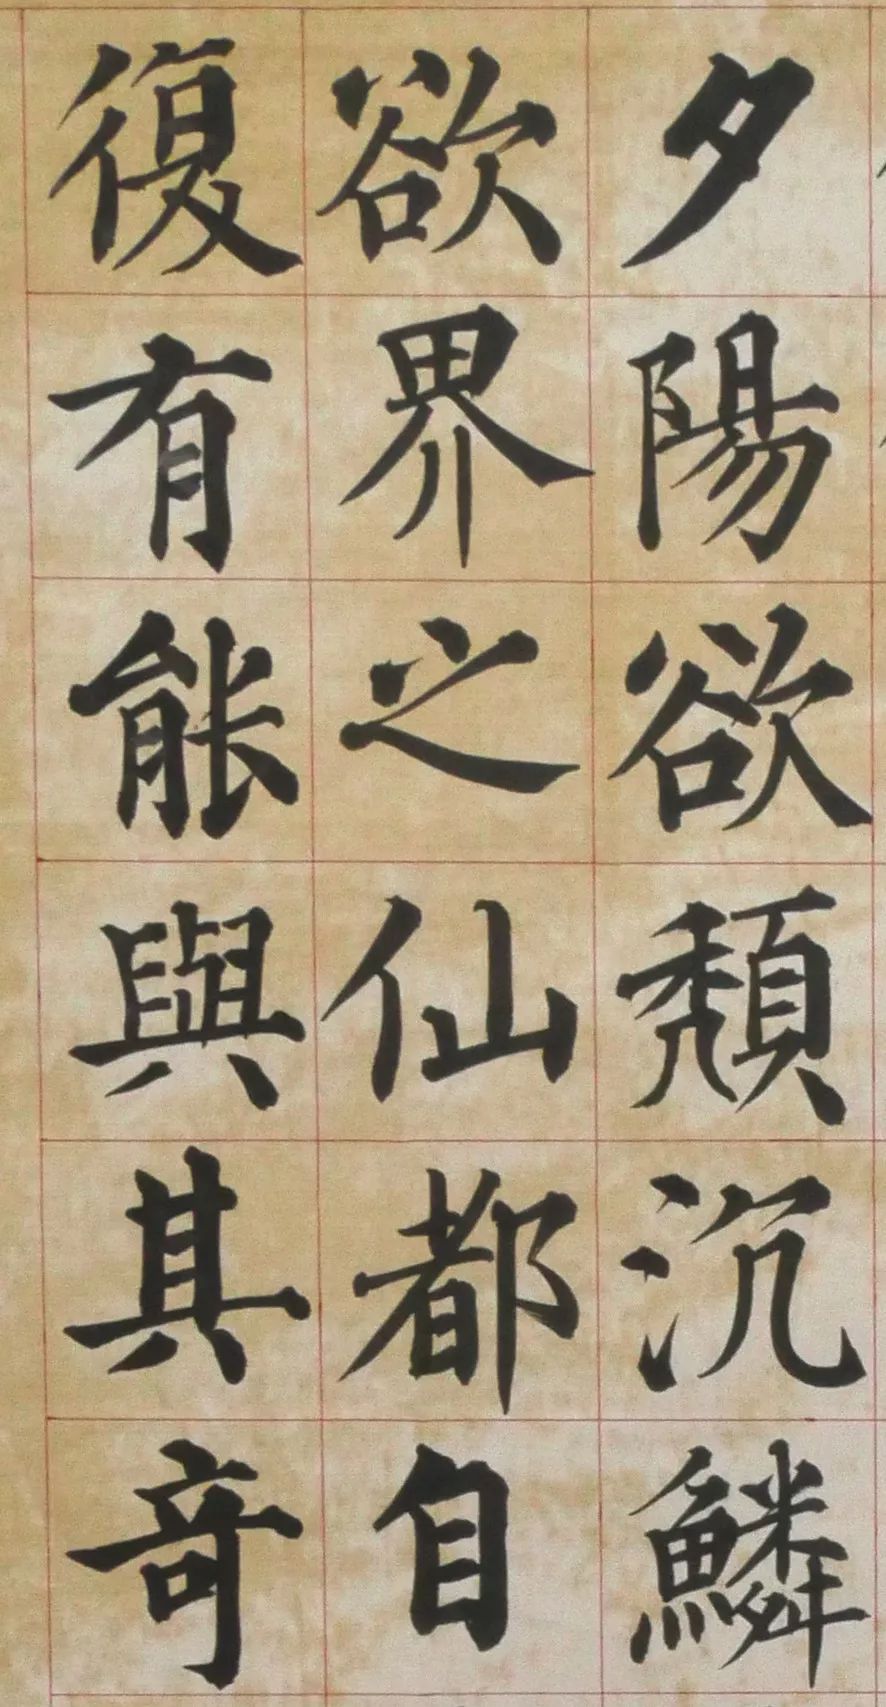 夕陽欲頹沉鱗
欲界之仙都自
復有能與其奇